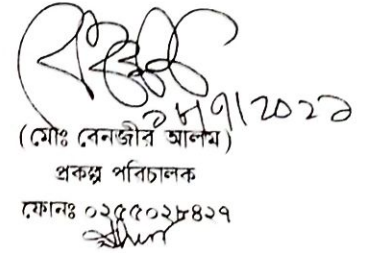 (মোঃ বেনজীর আলম)
প্রকল্প পরিচালক
ফোনঃ ০২৫৫০২৮৪২৭